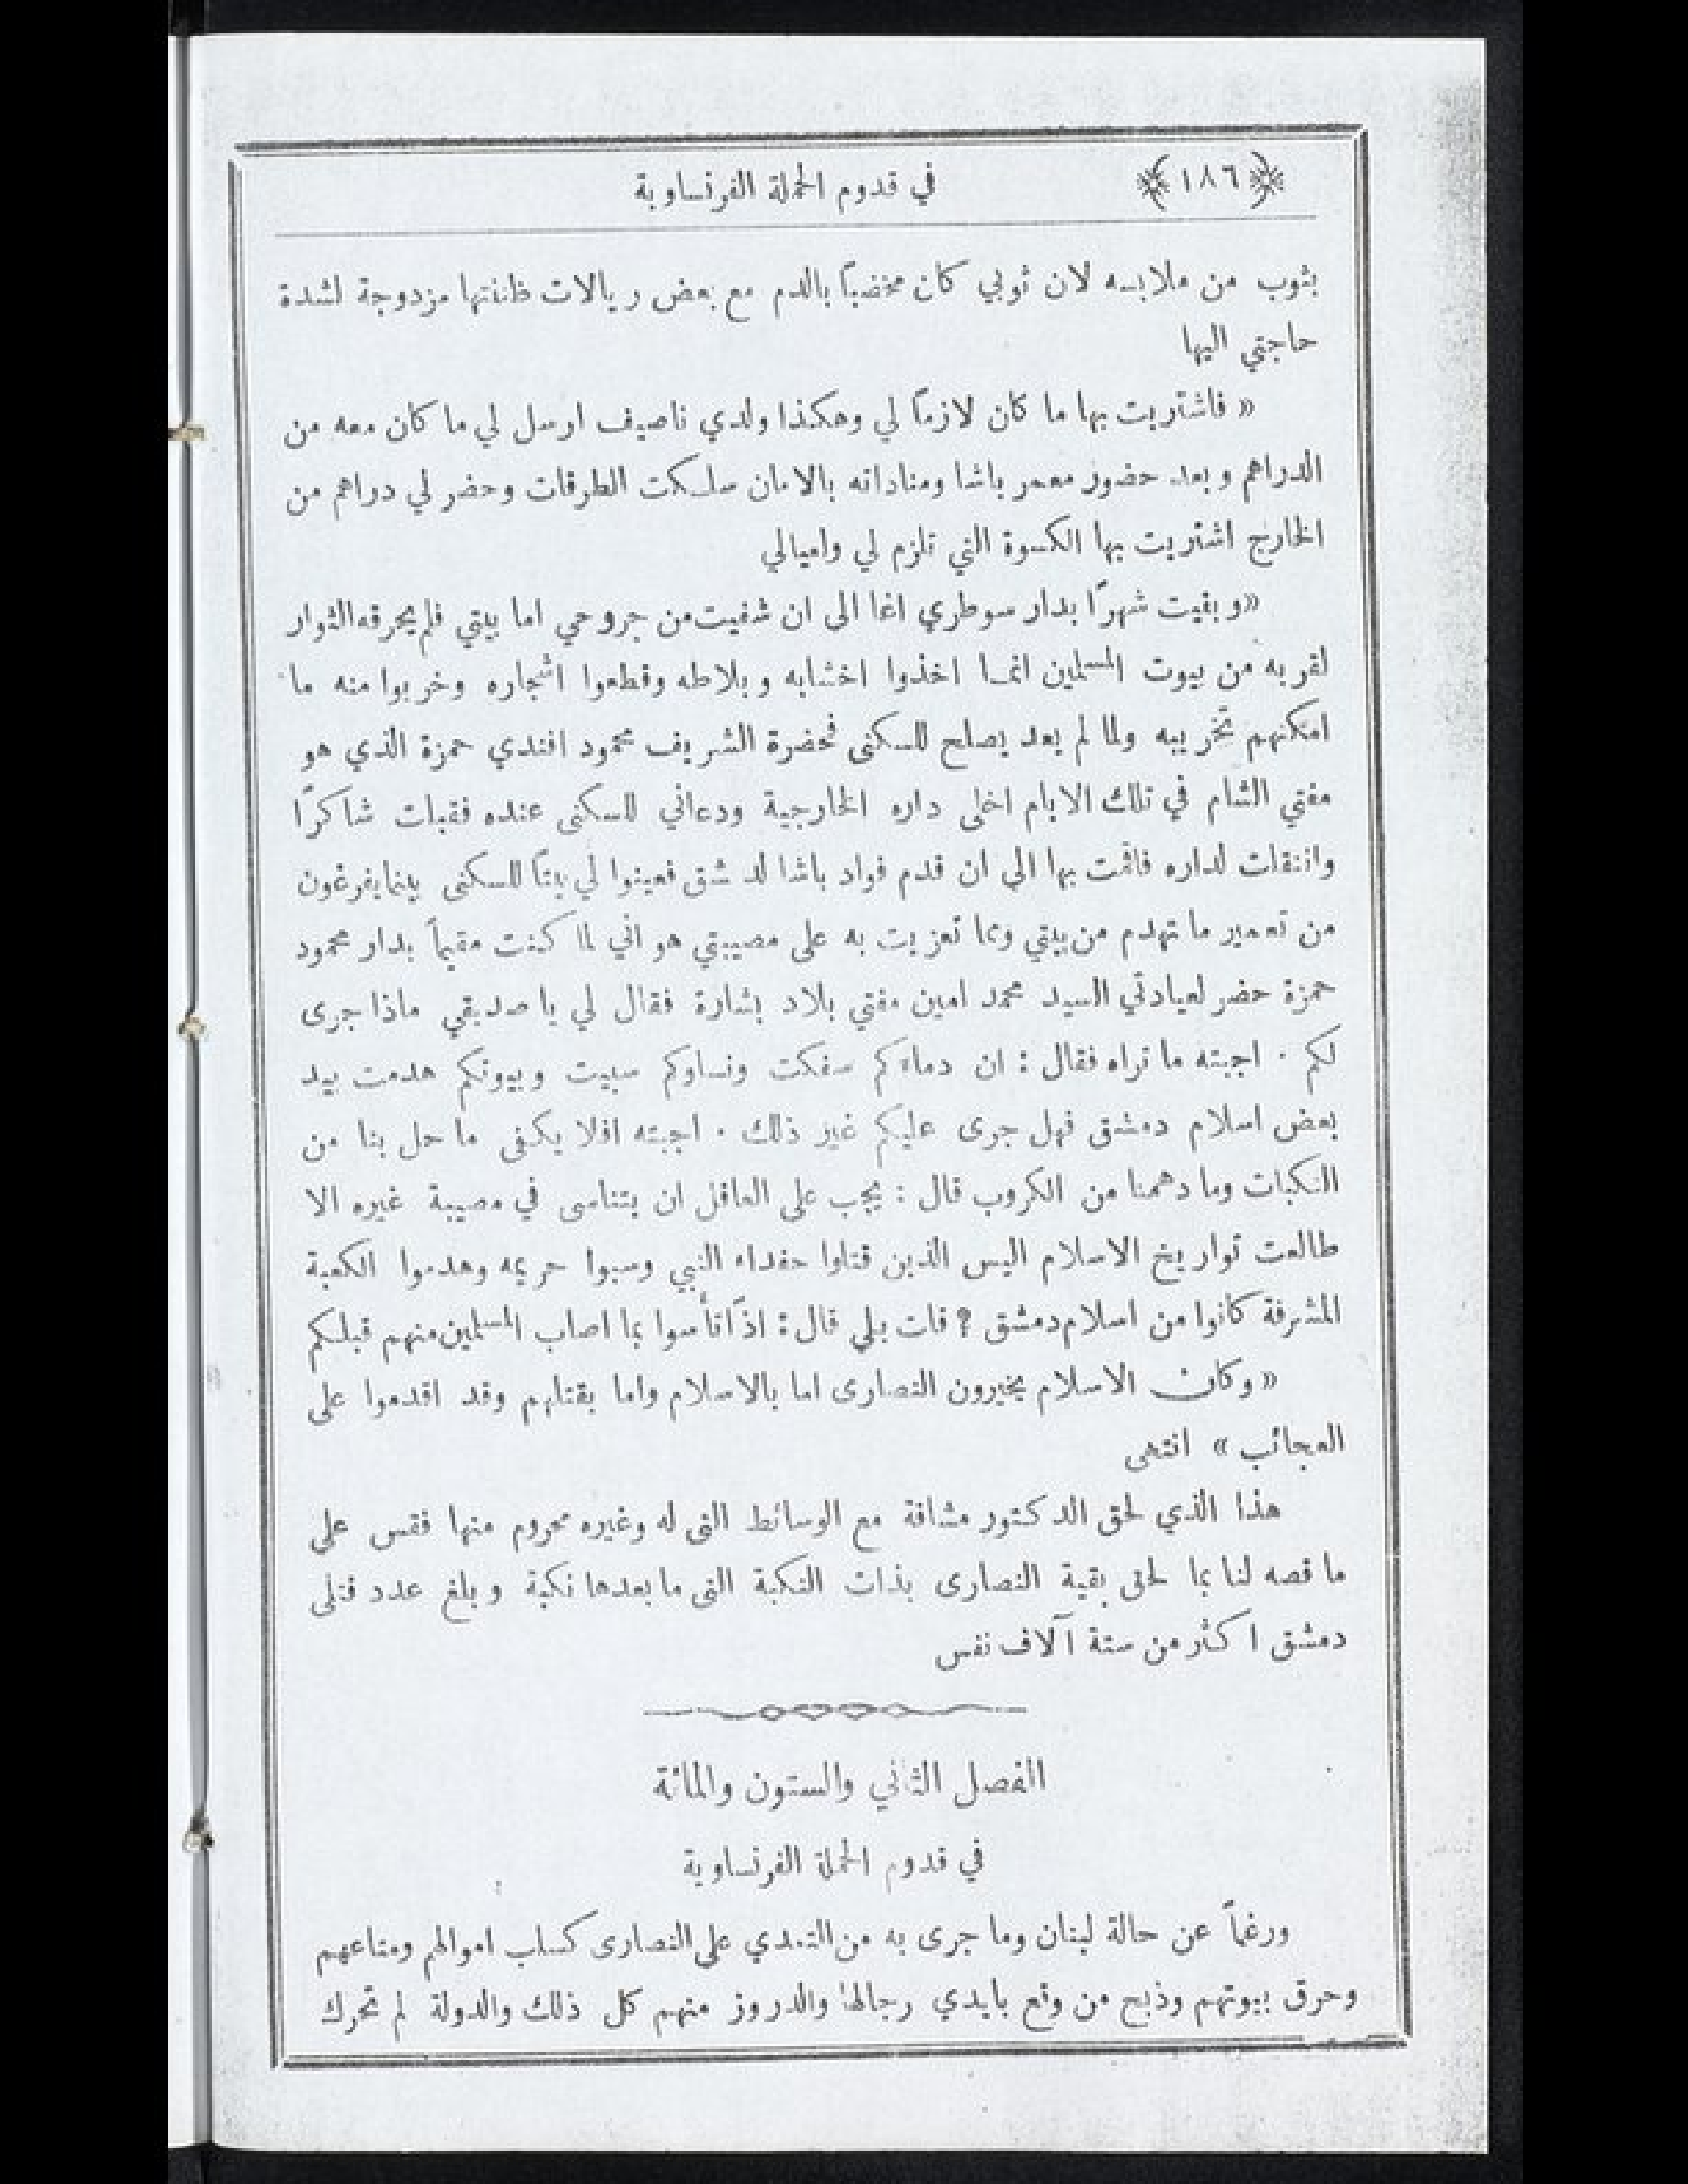 ﴿ ١٨٦ ﴾ في قدوم الحملة الفرنساوية
بثوب من ملابسه لان ثوبي كان مخضباً بالدم مع بعض ريالات ظننتها مزدوجة لشدة
حاجتي اليها
« فاشتريت بها ما كان لازماً لي وهكذا ولدي ناصيف ارسل لي ما كان معه من
الدراهم وبعد حضور معمر باشا ومناداته بالامان سلكت الطرقات وحضر لي دراهم من
الخارج اشتريت بها الكسوة التي تلزم لي ولعيالي
« وبقيت شهراً بدار سوطري اغا الى ان شفيت من جروحي اما بيتي فلم يحرقه الثوار
لقربه من بيوت المسلمين انما اخذوا اخشابه وبلاطه وقطعوا اشجاره وخربوا منه ما
امكنهم تخريبه ولما لم يعد يصلح للسكنى فحضرة الشريف محمود افندي حمزة الذي هو
مفتي الشام في تلك الايام اخلى داره الخارجية ودعاني للسكنى عنده فقبلت شاكراً
وانتقلت لداره فاقمت بها الى ان قدم فواد باشا لدمشق فعينوا لي بيتاً للسكنى بينما يفرغون
من تعمير ما تهدم من بيتي ومما تعزيت به على مصيبتي هو اني لما كنت مقيماً بدار محمود
حمزة حضر لعيادتي السيد محمد امين مفتي بلاد بشارة فقال لي يا صديقي ماذا جرى
لكم . اجبته ما تراه فقال : ان دماءكم سفكت ونساوكم سبيت وبيوتكم هدمت بيد
بعض اسلام دمشق فهل جرى عليكم غير ذلك . اجبته افلا يكفى ما حل بنا من
النكبات وما دهمنا من الكروب قال : يجب على العاقل ان يتناسى في مصيبة غيره الا
طالعت تواريخ الاسلام اليس الذين قتلوا حفداء النبي وسبوا حريمه وهدموا الكعبة
المشرفة كانوا من اسلام دمشق ؟ قلت بلي قال : اذاً تأسوا بما اصاب المسلمين منهم قبلكم
« وكان الاسلام يخيرون النصارى اما بالاسلام واما بقتلهم وقد اقدموا على
العجائب » انتهى
هذا الذي لحق الدكتور مشاقة مع الوسائط التى له وغيره محروم منها فقس على
ما قصه لنا بما لحق بقية النصارى بذات النكبة التى ما بعدها نكبة وبلغ عدد قتلى
دمشق اكثر من ستة آلاف نفس
الفصل الثاني والستون والمائة
في قدوم الحملة الفرنساوية
ورغماً عن حالة لبنان وما جرى به من التعدي على النصارى كسلب اموالهم ومتاعهم
وحرق بيوتهم وذبح من وقع بايدي رجالها والدروز منهم كل ذلك والدولة لم تحرك